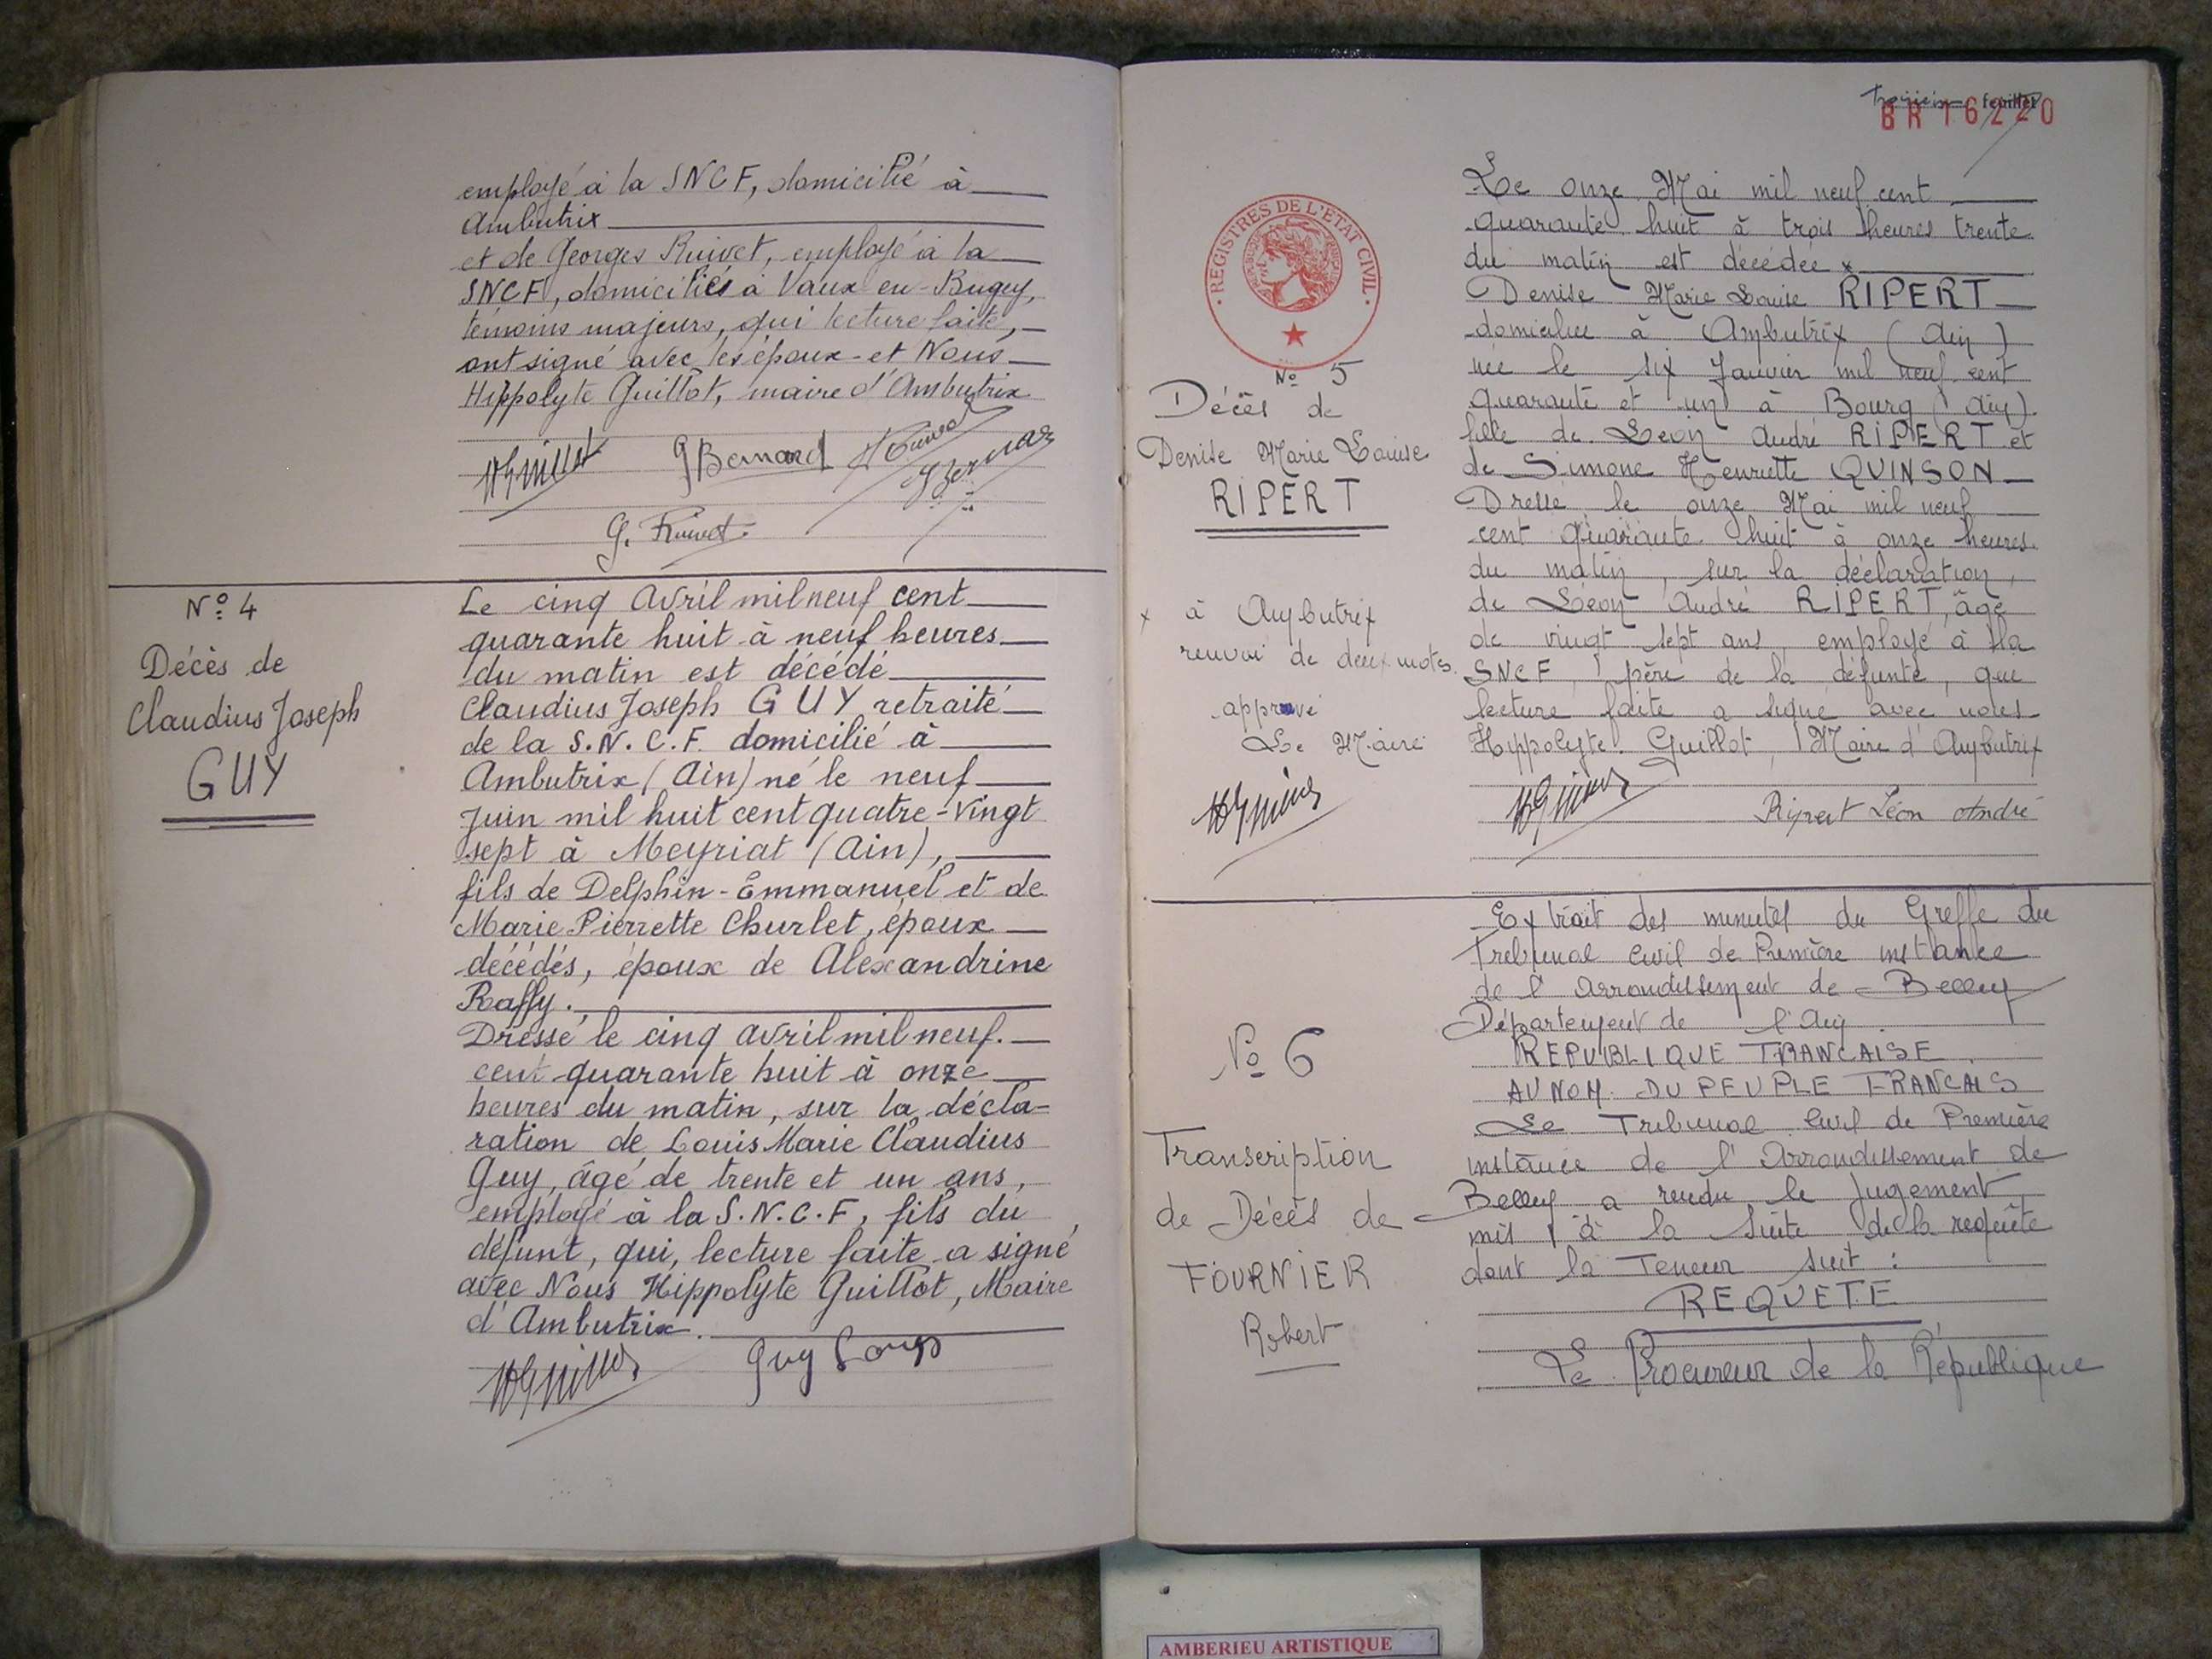 employé à la SNCF, domicilié à
Ambutrix
et de Georges Ruivet, employé à la
SNCF, domiciliés à Vaux en-Bugey,
témoins majeurs, qui lecture faite,
ont signé avec les époux et Nous
Hippolyte Guillot, maire d'Ambutrix
G Bernard
G. Ruivet
N° 4
Décès de
Claudius Joseph
GUY
Le cinq Avril mil neuf cent
quarante huit à neuf heures
du matin est décédé
Claudius Joseph GUY retraité
de la S.N.C.F. domicilié à
Ambutrix (Ain) né le neuf
Juin mil huit cent quatre-vingt
sept à Meyriat (Ain),
fils de Delphin-Emmanuel et de
Marie Pierrette Churlet, époux
décédés, époux de Alexandrine
Raffy.
Dressé le cinq avril mil neuf.
cent quarante huit à onze
heures du matin, sur la décla-
ration de Louis Marie Claudius
Guy, âgé de trente et un ans,
employé à la S.N.C.F, fils du
défunt, qui, lecture faite a signé
avec Nous Hippolyte Guillot, Maire
d'Ambutrix.
Guy Louis
feuillet
BR 16220
REGISTRES DE L'ETAT CIVIL
N° 5
Décès de
Denise Marie Louise
RIPERT
x à Ambutrix
renvoi de deux mots
approuvé
Le Maire
Le onze Mai mil neuf cent
quarante huit à trois heures trente
du matin est décédée x
Denise Marie Louise RIPERT
domiciliée à Ambutrix (Ain)
née le six Janvier mil neuf cent
quarante et un à Bourg (Ain)
fille de Léon André RIPERT et
de Simone Henriette QUINSON
Dressé le onze Mai mil neuf
cent quarante huit à onze heures
du matin, sur la déclaration,
de Léon André RIPERT, âgé
de vingt sept ans, employé à la
SNCF, père de la défunte, que
lecture faite a signé avec nous
Hippolyte Guillot, Maire d'Ambutrix
Ripert Léon André
N° 6
Transcription
de Décès de
FOURNIER
Robert
Extrait des minutes du Greffe du
Tribunal Civil de Première instance
de l'Arrondissement de Belley
Département de l'Ain.
REPUBLIQUE FRANCAISE
AU NOM DU PEUPLE FRANCAIS
Le Tribunal Civil de Première
instance de l'Arrondissement de
Belley a rendu le Jugement
mis à la suite de la requête
dont la Teneur suit :
REQUÊTE
Le Procureur de la République
AMBERIEU ARTISTIQUE